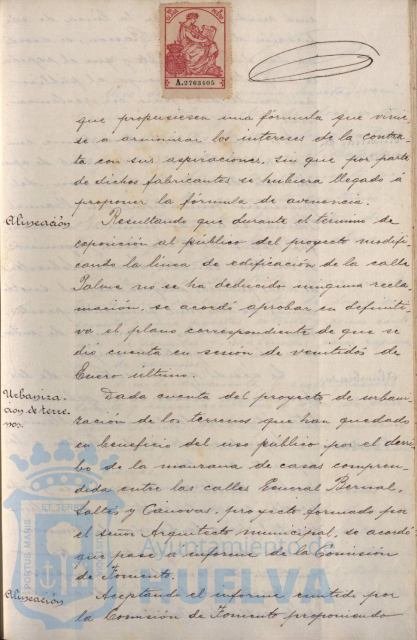 A.2763405
que propusiesen una fórmula que vinie-
se a armonizar los intereses de la contra-
ta con sus aspiraciones, sin que por parte
de dichos fabricantes se hubiera llegado á
proponer la fórmula de avenencia.
Alineación
Resultando que durante el término de
exposición al público del proyecto modifi-
cando la línea de edificación de la calle
Palos no se ha deducido ninguna recla-
mación, se acordó aprobar en definiti-
va el plano correspondiente de que se
dió cuenta en sesión de veintidos de
Enero último.
Urbaniza-
ción de terre-
nos.
Dada cuenta del proyecto de urbani-
zación de los terrenos que han quedado
en beneficio del uso público, por el derri-
bo de la manzana de casas compren-
dida entre las calles General Bernal,
Saltés y Cánovas, proyecto formado por
el señor Arquitecto municipal, se acordó
que pase a informe de la Comisión
de Fomento.
Alineación
Aceptando el informe emitido por
la Comisión de Fomento proponiendo
PORTUS MARIS ET TERRAE
Ayuntamiento de
HUELVA